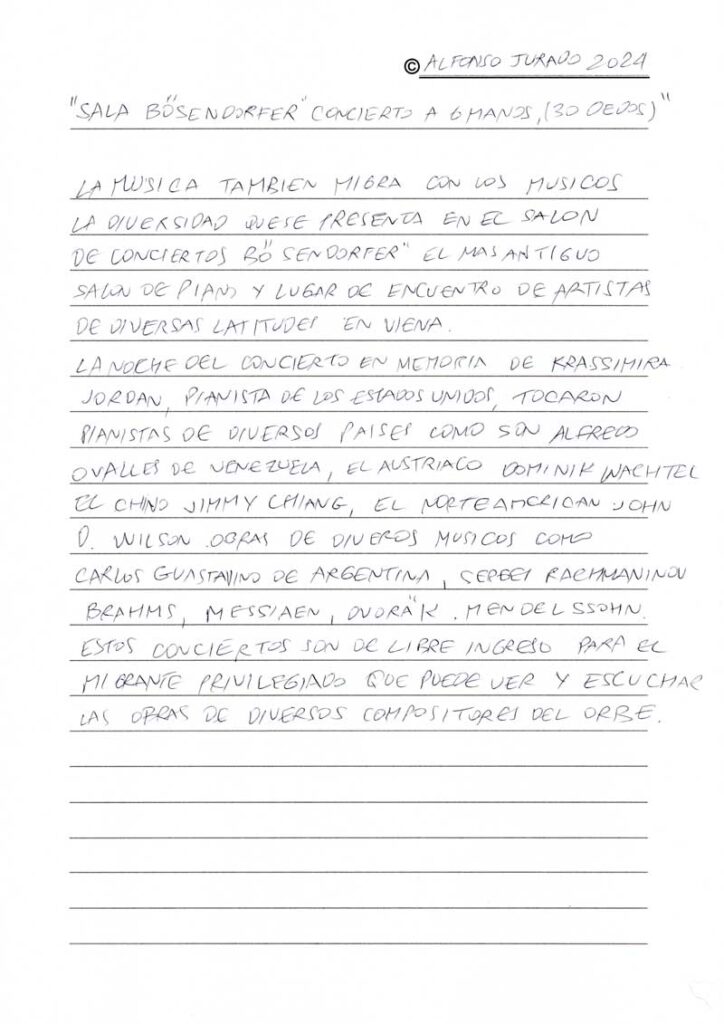 © ALFONSO JURADO 2024
"SALA BÖSENDORFER" CONCIERTO A 6 MANOS, (30 DEDOS)"
LA MUSICA TAMBIEN MIGRA CON LOS MUSICOS
LA DIVERSIDAD QUE SE PRESENTA EN EL SALON
DE CONCIERTOS BÖSENDORFER" EL MAS ANTIGUO
SALON DE PIANO Y LUGAR DE ENCUENTRO DE ARTISTAS
DE DIVERSAS LATITUDES EN VIENA.
LA NOCHE DEL CONCIERTO EN MEMORIA DE KRASSIMIRA
JORDAN, PIANISTA DE LOS ESTADOS UNIDOS, TOCARON
PIANISTAS DE DIVERSOS PAISES COMO SON ALFREDO
OVALLES DE VENEZUELA, EL AUSTRIACO DOMINIK WACHTEL
EL CHINO JIMMY CHIANG, EL NORTEAMERICAN JOHN
D. WILSON. OBRAS DE DIVEROS MUSICOS COMO
CARLOS GUASTAVINO DE ARGENTINA, SERGEI RACHMANINOV
BRAHMS, MESSIAEN, DVORÄK. MENDELSSOHN.
ESTOS CONCIERTOS SON DE LIBRE INGRESO PARA EL
MIGRANTE PRIVILEGIADO QUE PUEDE VER Y ESCUCHAR
LAS OBRAS DE DIVERSOS COMPOSITORES DEL ORBE.